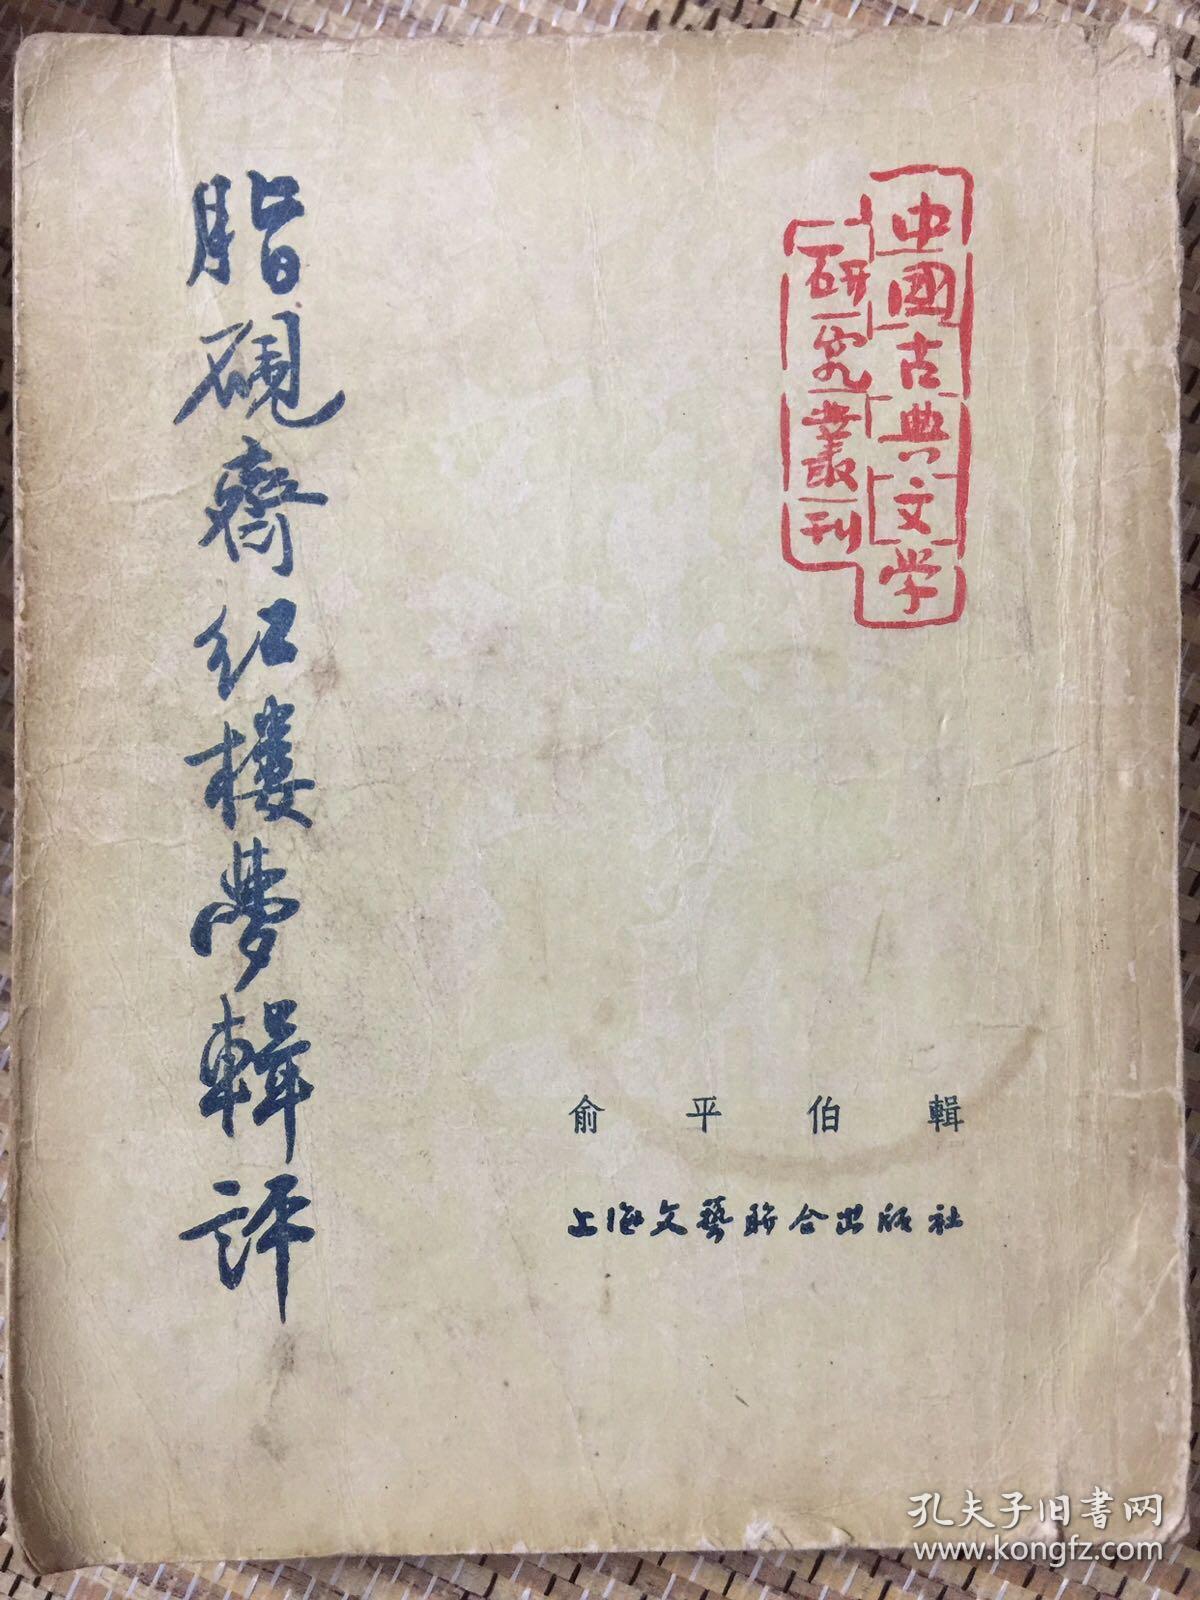 中國古典文学
研究叢刊
脂硯齋红楼夢輯评
俞平伯輯
上海文藝联合出版社
孔夫子旧书网
www.kongfz.com